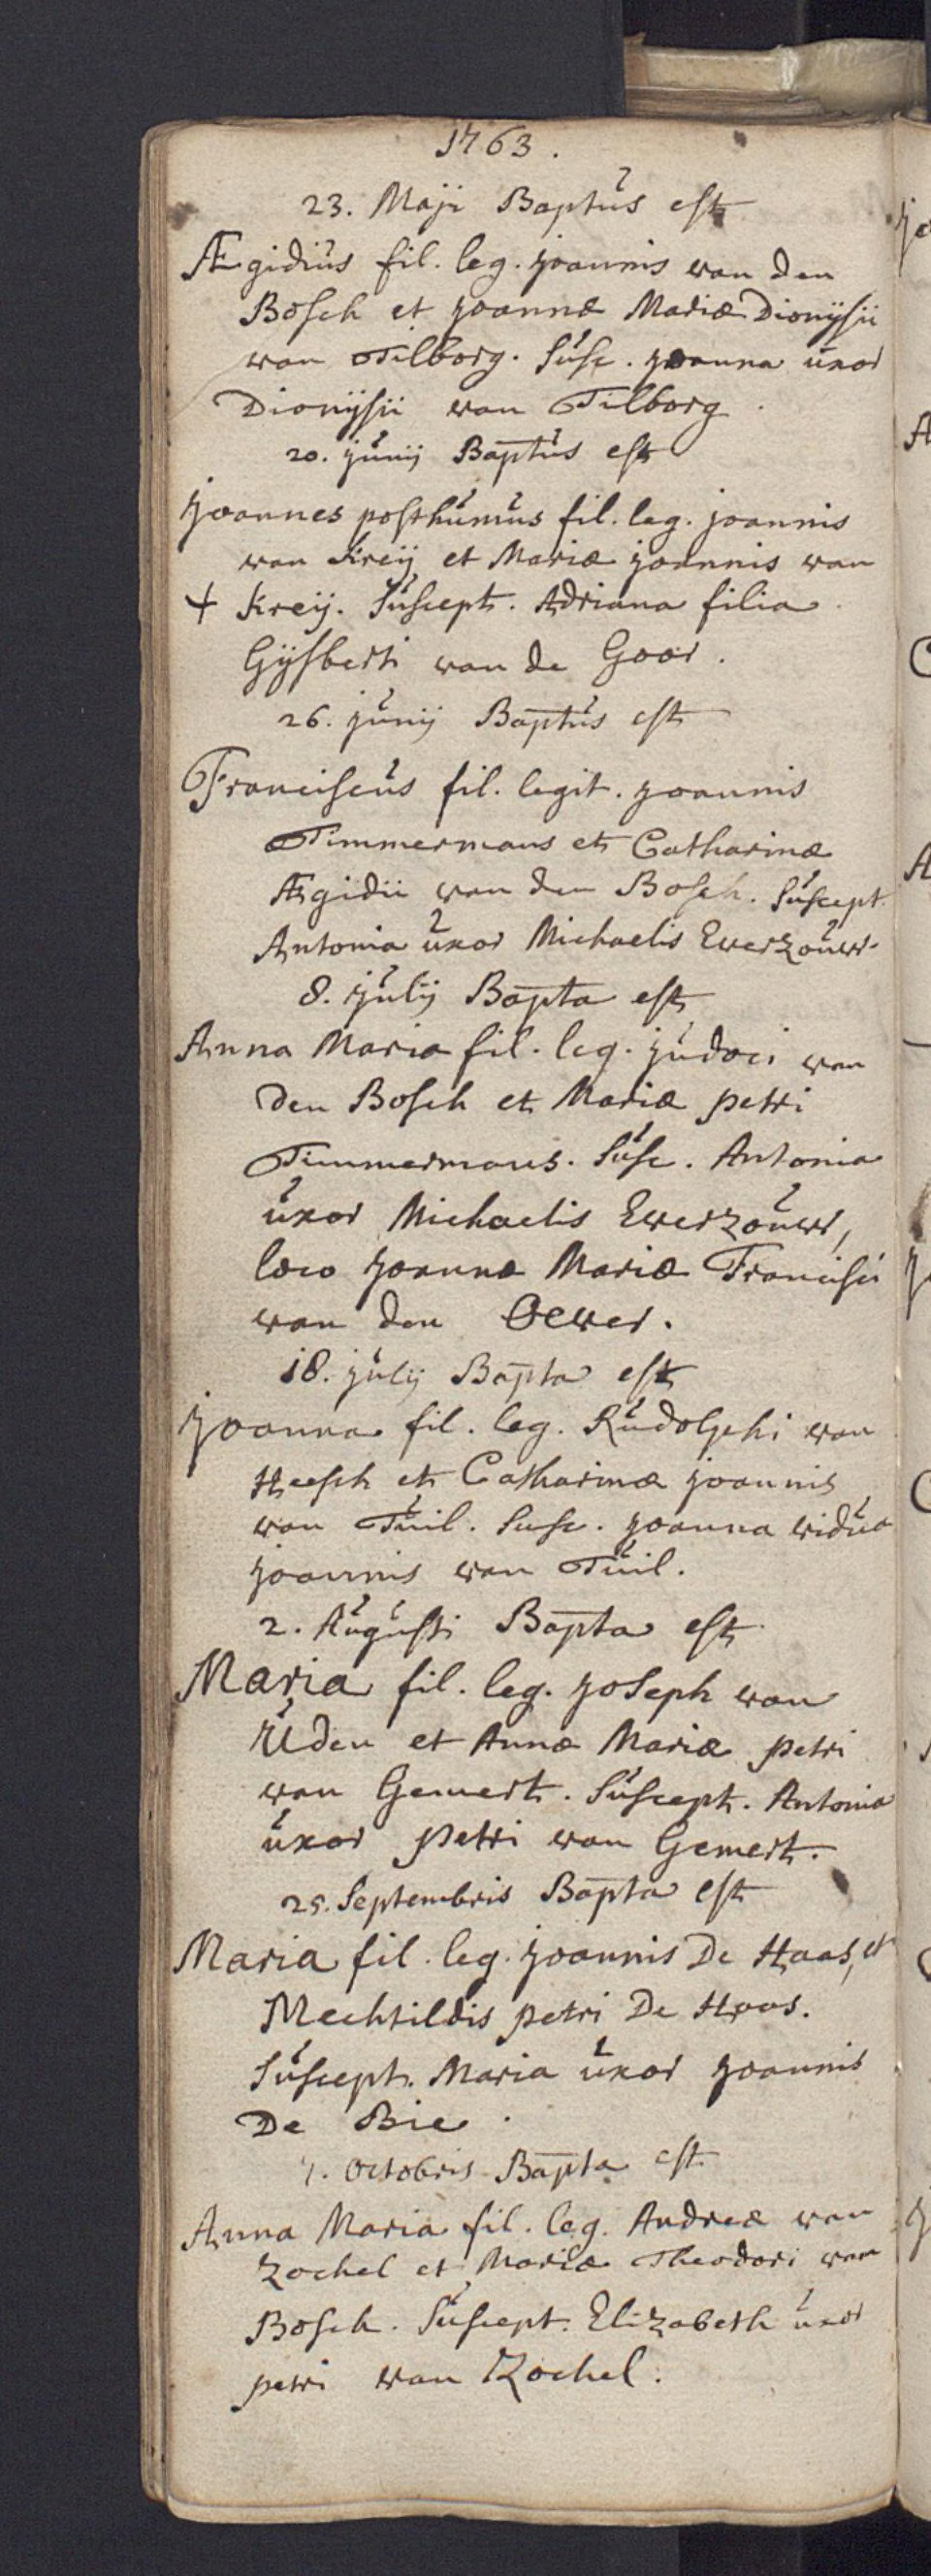 1763.
23. Maji Baptus est
Ægidius fil. leg. joannis van den
Bosch et joannæ Mariæ Dionijsii
van Tilborg. Susc. joanna uxor
Dionijsii van Tilborg.
20. junij Baptus est
joannes posthumus fil. leg. joannis
van Kreij et Mariæ joannis van
+ Kreij. Suscept. Adriana filia
Gijsberti van de Goor.
26. junij Baptus est
Franciscus fil. legit. joannis
Timmermans et Catharinæ
Ægidii van den Bosch. Suscept.
Antonia uxor Michaelis Everzouw.
8. julij Bapta est
Anna Maria fil. leg. judoci van
den Bosch et Mariæ petri
Timmermans. Susc. Antonia
uxor Michaelis Everzouw,
loco joannæ Mariæ Francisci
van den Oever.
18. julij Bapta est
joanna fil. leg. Rudolphi van
Heesch et Catharinæ joannis
van Tuil. Susc. joanna vidua
joannis van Tuil.
2. Augusti Bapta est
Maria fil. leg. joseph van
Uden et Annæ Mariæ petri
van Gemert. Suscept. Antonia
uxor petri van Gemert.
25. Septembris Bapta est
Maria fil. leg. joannis De Haas, et
Mechtildis petri De Haas.
Suscept. Maria uxor joannis
De Bie.
7. Octobris Bapta est
Anna Maria fil. leg. Andreæ van
Zochel et Mariæ Theodori van
Bosch. Suscept. Elizabeth uxor
petri van Zochel.